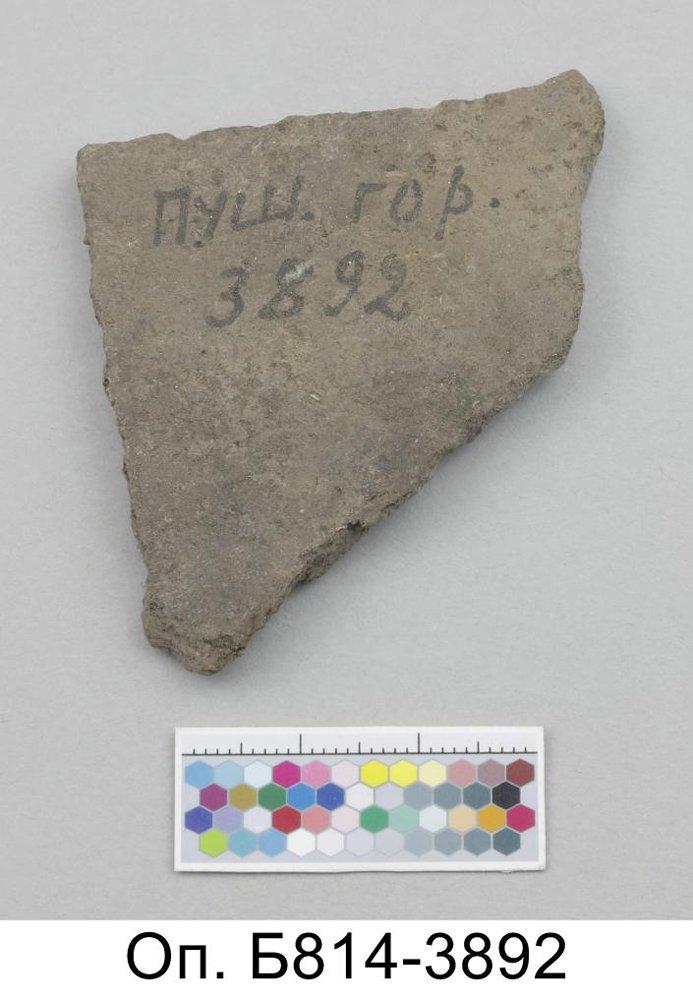 пуш. гор.
3892
Оп. Б814-3892